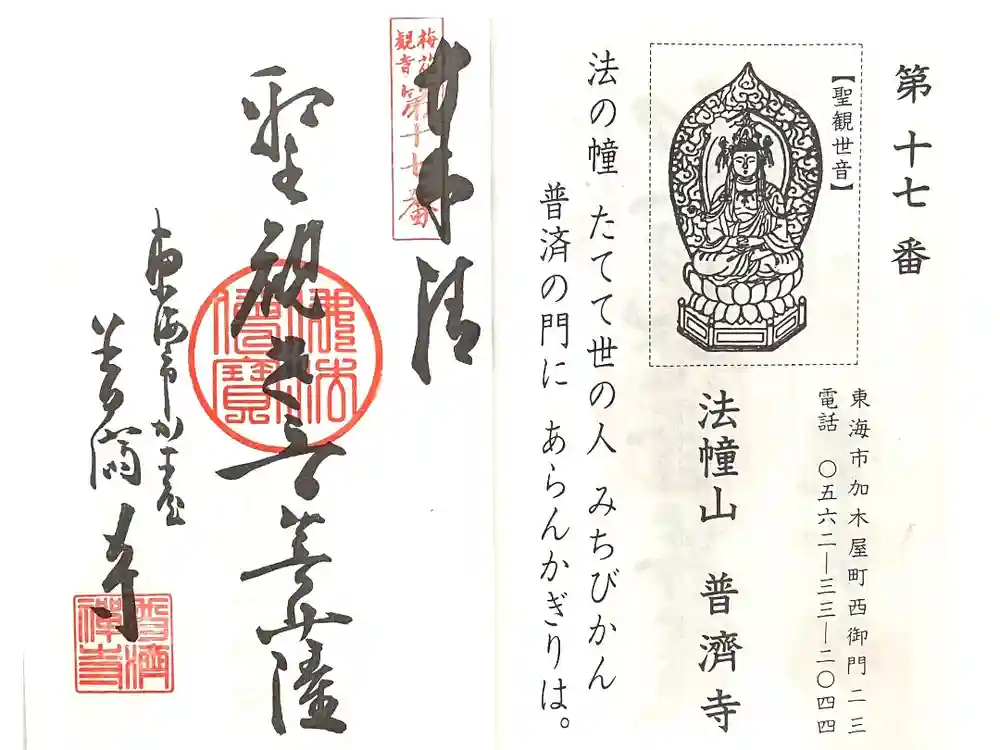 第十七番
【聖観世音】
東海市加木屋町西御門二三
電話 〇五六二―三三―二〇四四
法幢山 普濟寺
法の幢 たてて世の人 みちびかん
普済の門に あらんかぎりは。
奉拝
梅花
観音
第十七番
聖観世音菩薩
佛法
僧寳
東海市加木屋
普濟寺
普濟
禅寺